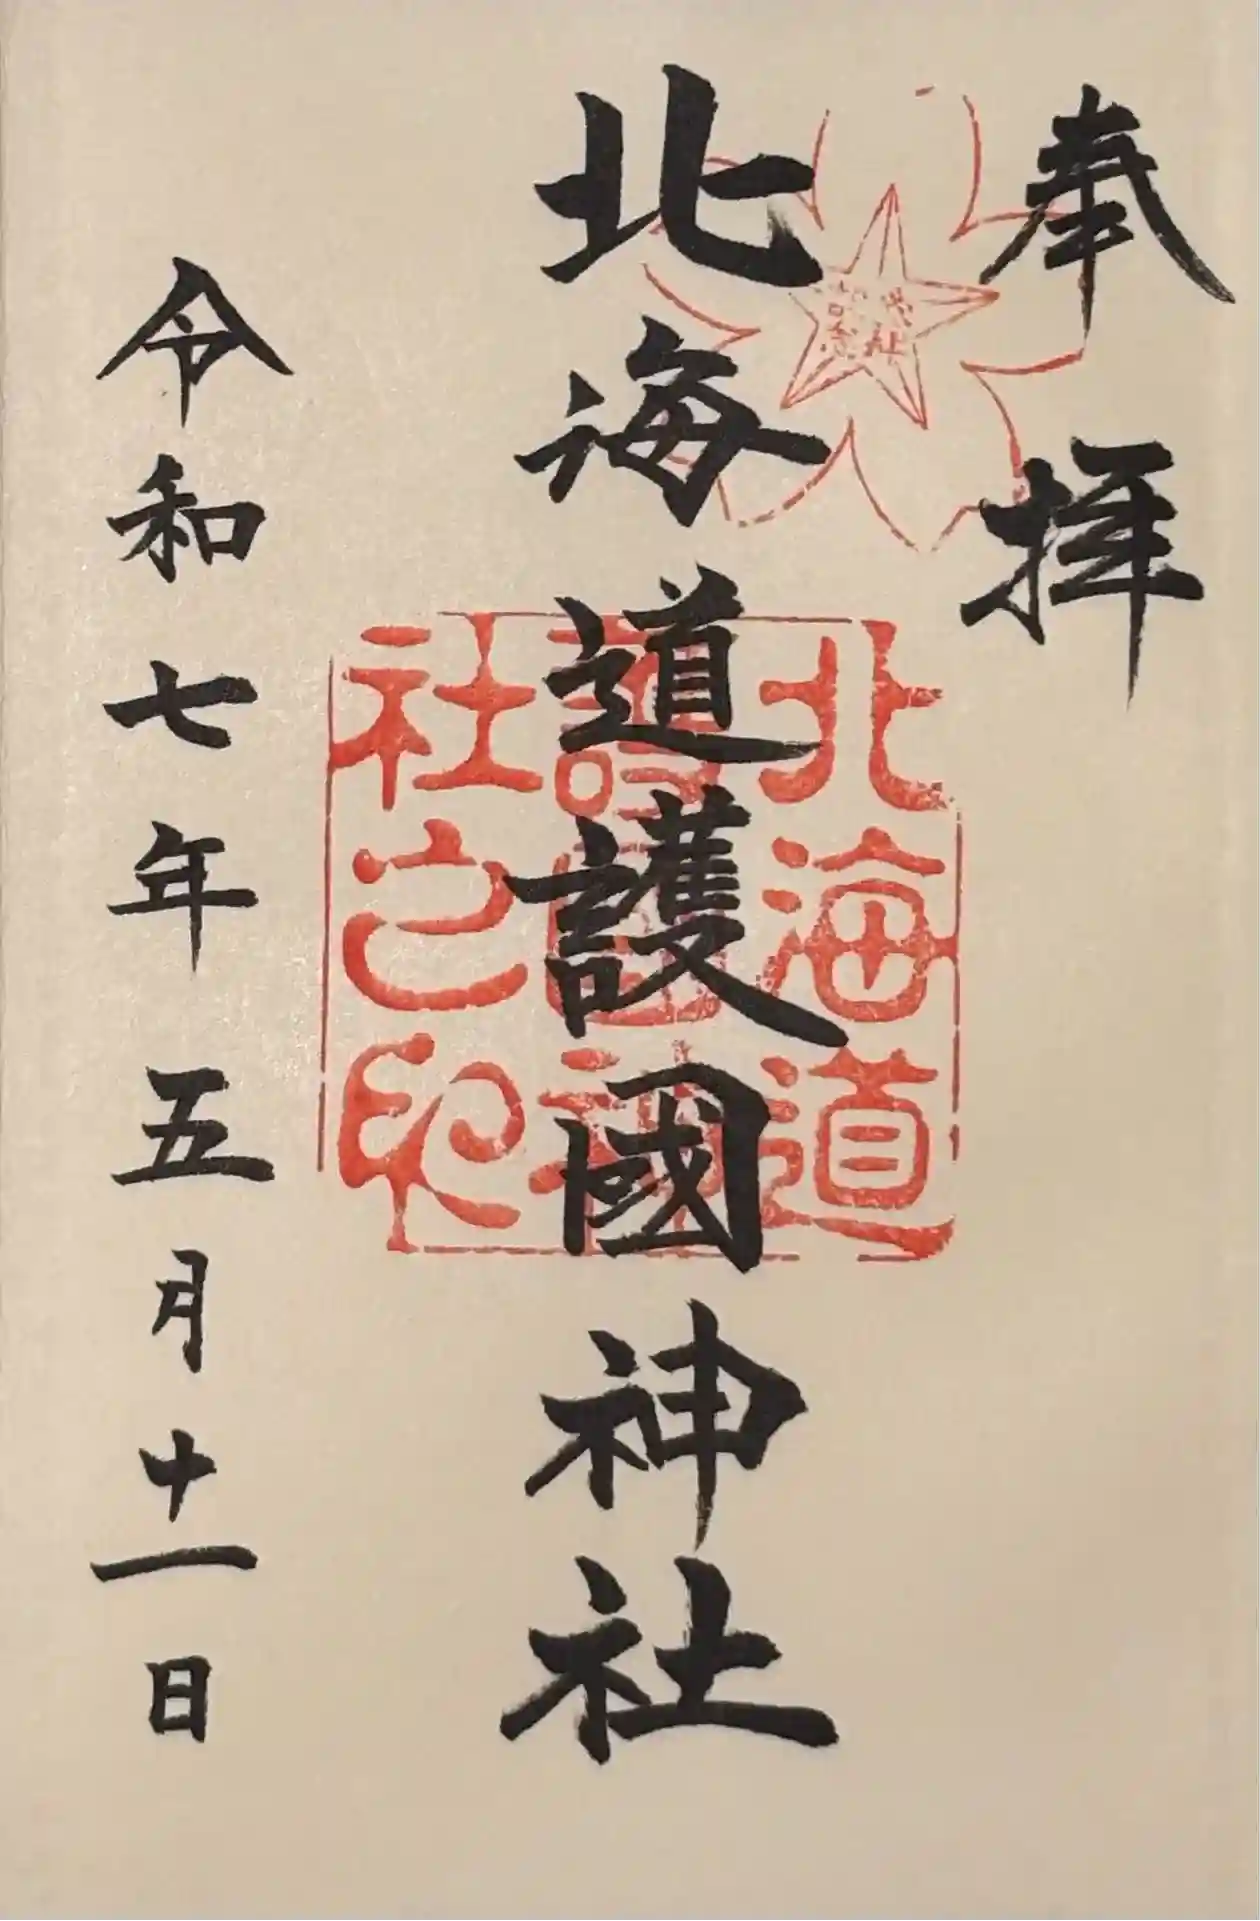 奉拝
参社
記念
北海道護國神社
北海道
護國神
社之印
令和七年五月十一日